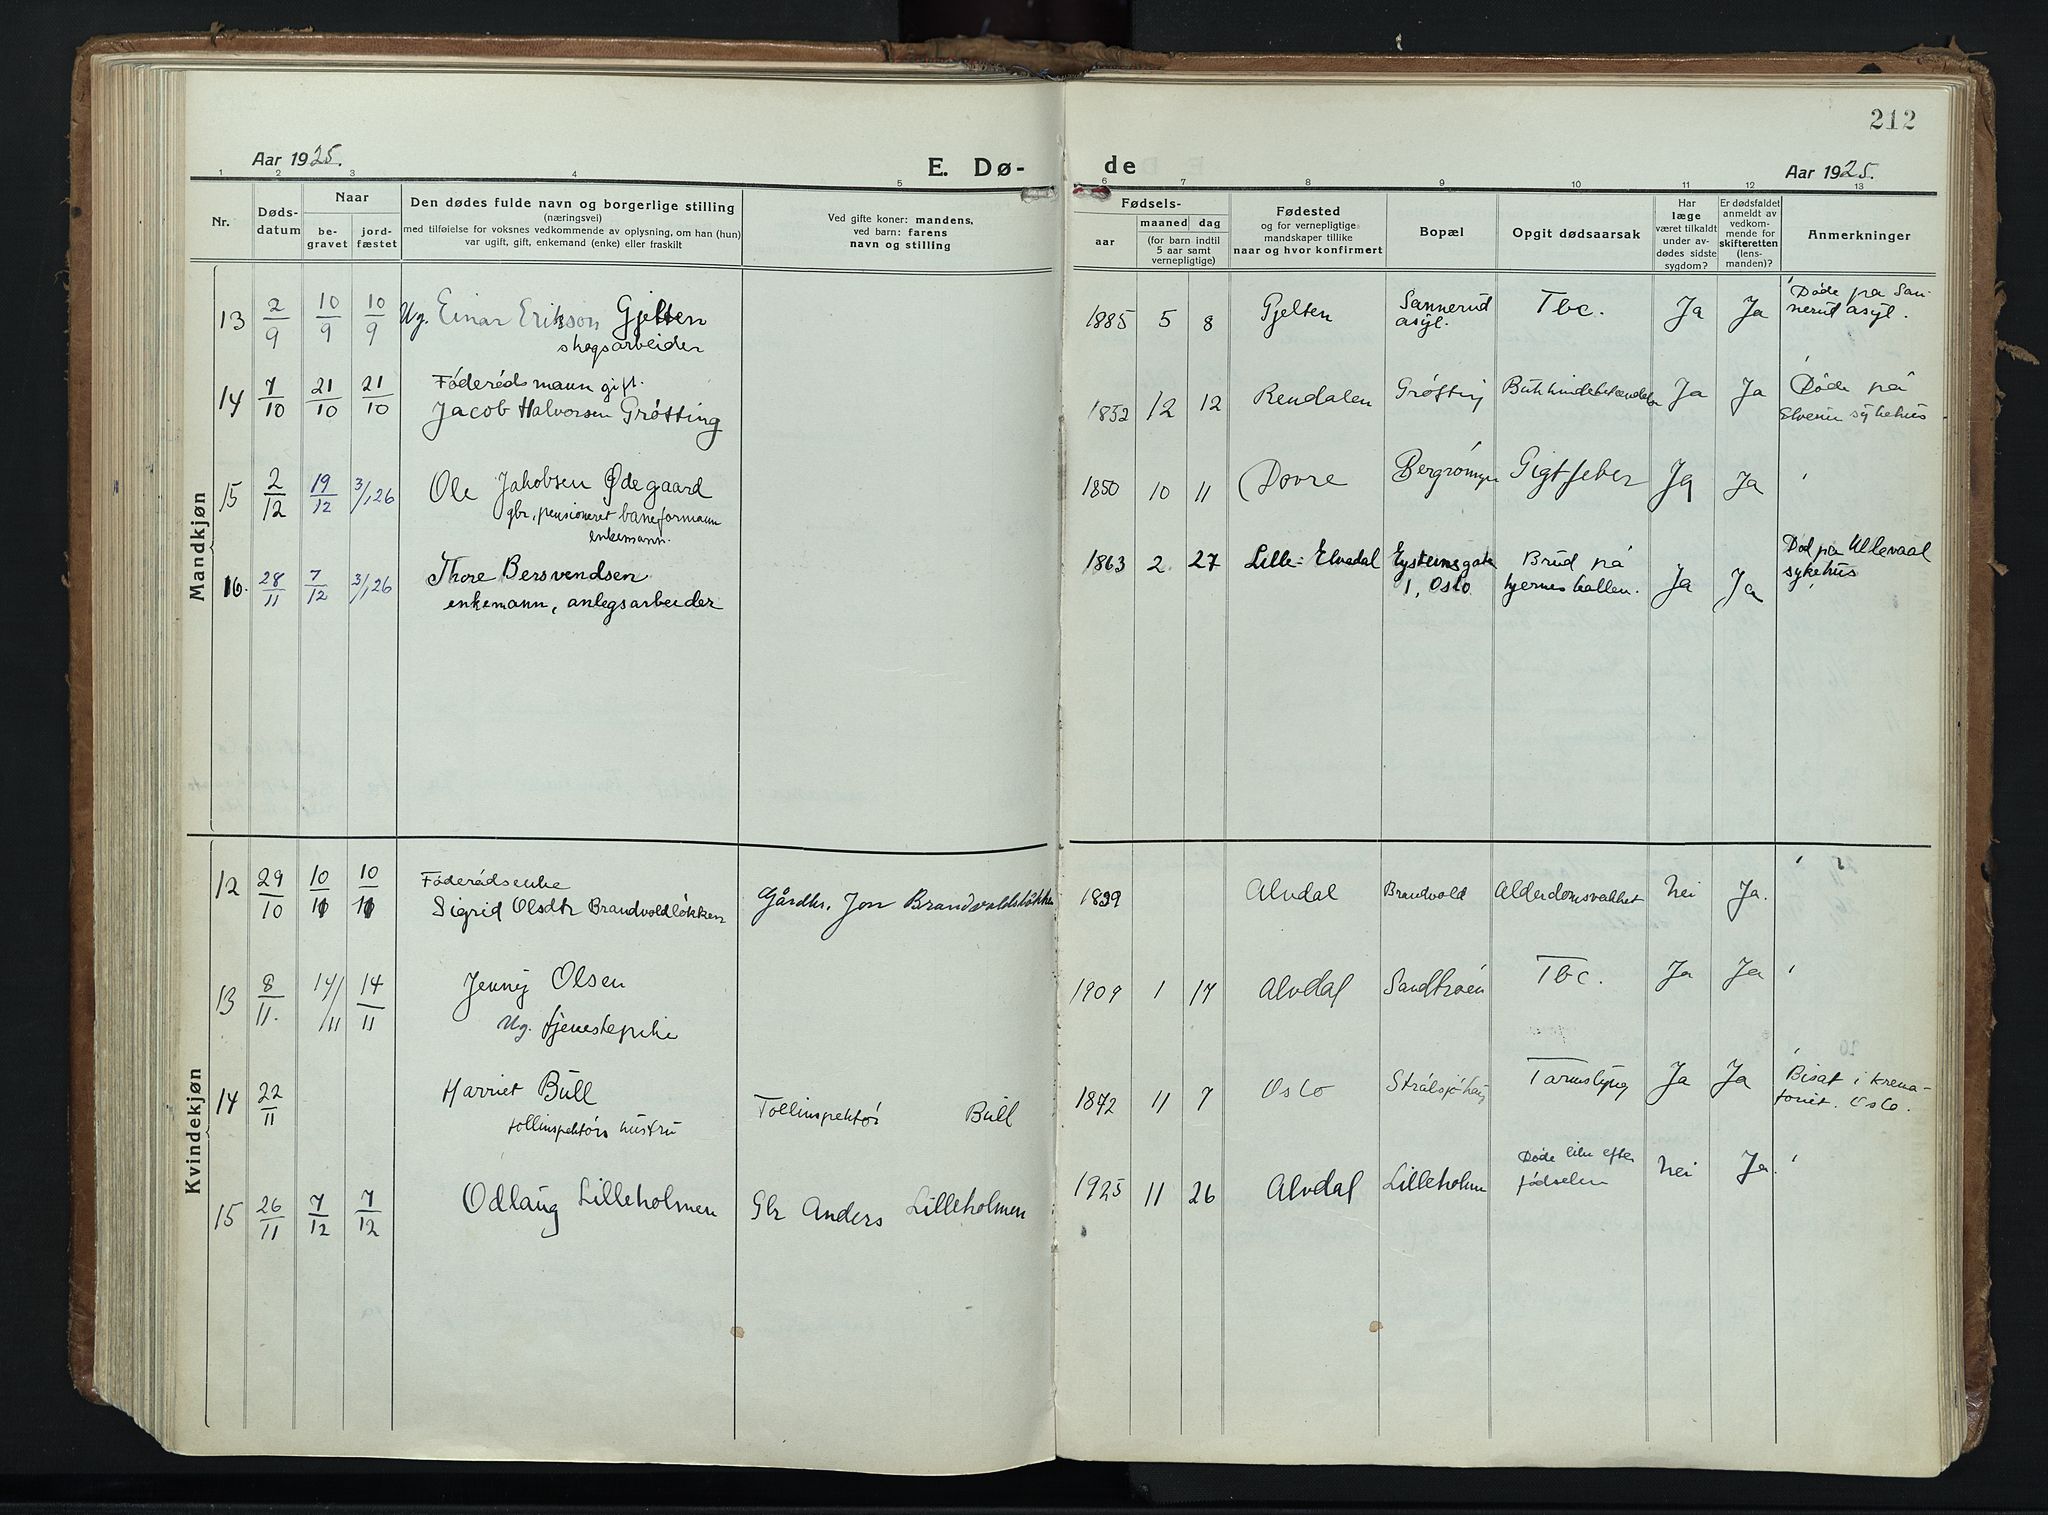 212
Aar 1925.
E. Dø-
de
Aar 1925.
1 2 3 4 5 6 7 8 9 10 11 12 13
Nr.
Døds-
datum
Naar
be-
gravet
jord-
fæstet
Den dødes fulde navn og borgerlige stilling
(næringsvei)
med tilføielse for voksnes vedkommende av oplysning, om han (hun)
var ugift, gift, enkemand (enke) eller fraskilt
Ved gifte koner: mandens,
ved barn: farens
navn og stilling
Fødsels-
aar
maaned
dag
(for barn indtil
5 aar samt
vernepligtige)
Fødested
og for vernepligtige
mandskaper tillike
naar og hvor konfirmert
Bopæl
Opgit dødsaarsak
Har
læge
været tilkaldt
under av-
dødes sidste
sygdom?
Er dødsfaldet
anmeldt av
vedkom-
mende for
skifteretten
(lens-
manden)?
Anmerkninger
Mandkjøn
13 2/9 10/9 10/9 Ug. Einar Erikson Gjelten
skogsarbeider
1885 5 8 Gjelten Sannerud
asyl. Tbc. Ja Ja Døde på San-
nerud asyl.
14 7/10 21/10 21/10 Föderådsmann gift.
Jacob Halvorsen Grøtting
1852 12 12 Rendalen Grøtting Bukhindebetændelse Ja Ja Døde på
Elverum sykehus
15 2/12 19/12 3/1 26 Ole Jakobsen Ødegaard
gbr, pensioneret baneformann
enkemann.
1850 10 11 Dovre Gigtfeber Ja Ja
16. 28/11 7/12 3/1 26 Thore Bersvendsen
enkemann, anlegsarbeider
1863 2 27 Lille-Elvedal Eysteinsgate
1, Oslo. Brud på
hjerneskallen. Ja Ja Död på Ullevaal
sykehus
Kvindekjøn
12 29/10 10/11 10/11 Föderådsenke
Sigrid Olsdtr Brandvoldløkken
Gårdbr. Jon Brandvoldsløkken
1839 Alvdal Brandvold Alderdomsvakhet nei Ja.
13 8/11. 14/11 14/11 Jenny Olsen
Ug. tjenestepike
1909 1 17 Alvdal Sandtrøen Tbc. Ja Ja
14 22/11 Harriet Bull
tollinspektørs hustru
Tollinspektør Bull
1872 11 7 Oslo Strålsjøhaug Tarmslyng Ja Ja Bisat i krema-
toriet. Oslo.
15 26/11 7/12 7/12 Odlaug Lilleholmen
Gbr Anders Lilleholmen
1925 11 26 Alvdal Lilleholm Døde like efter
fødselen nei Ja.